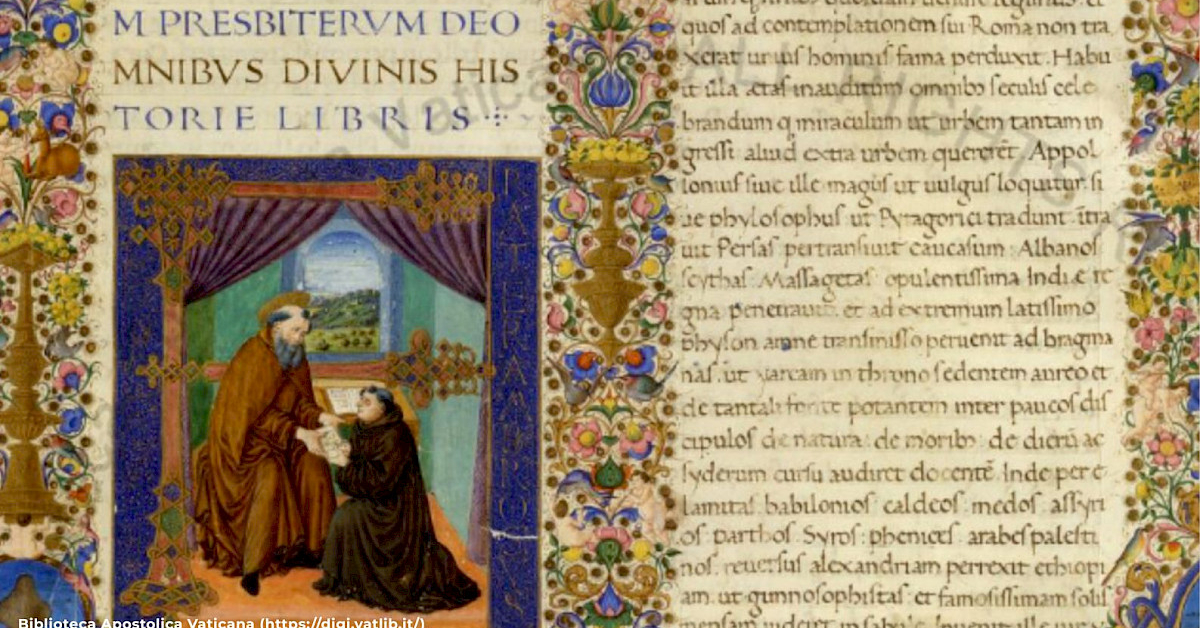 M PRESBITERVM DEO
MNIBVS DIVINIS HIS
TORIE LIBRIS
quos ad contemplationem sui Roma non tra
xerat unius hominis fama perduxit. Habu
it illa ætas inauditum omnibo seculis cele
brandum q miraculum ut urbem tantam in
gressi aliud extra urbem quererēt Appol
lonius siue ille magus ut uulgus loquitur. si
ue phylosophus ut Pytagorici tradunt. ītra
uit Persas pertransiuit caucasum Albanos
scythas Massagetas opulentissima Indiæ re
gna penetrauit. et ad extremum latissimo
physon amne transmisso peruenit ad bragma
nas. ut yarcam in throno sedentem aureo et
de tantali fonte potantem inter paucos dis
cipulos de natura de morib de dierū ac
syderum cursu audiret docentē. Inde per e
lamitas babilonios caldeos medos assyri
os parthos Syros phenices arabes palesti
nos. reuersus alexandriam perrexit ethiopi
am. ut gunnosophistas et famosissimam solis
mensam uideret
Biblioteca Apostolica Vaticana (https://digi.vatlib.it/)